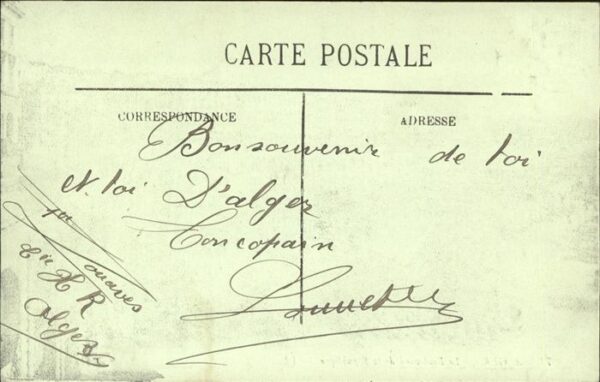 CARTE POSTALE
CORRESPONDANCE
ADRESSE
Bonsouvenir de toi
et toi D'alger
Ton copain
Zouaves
Cie H R
Alger